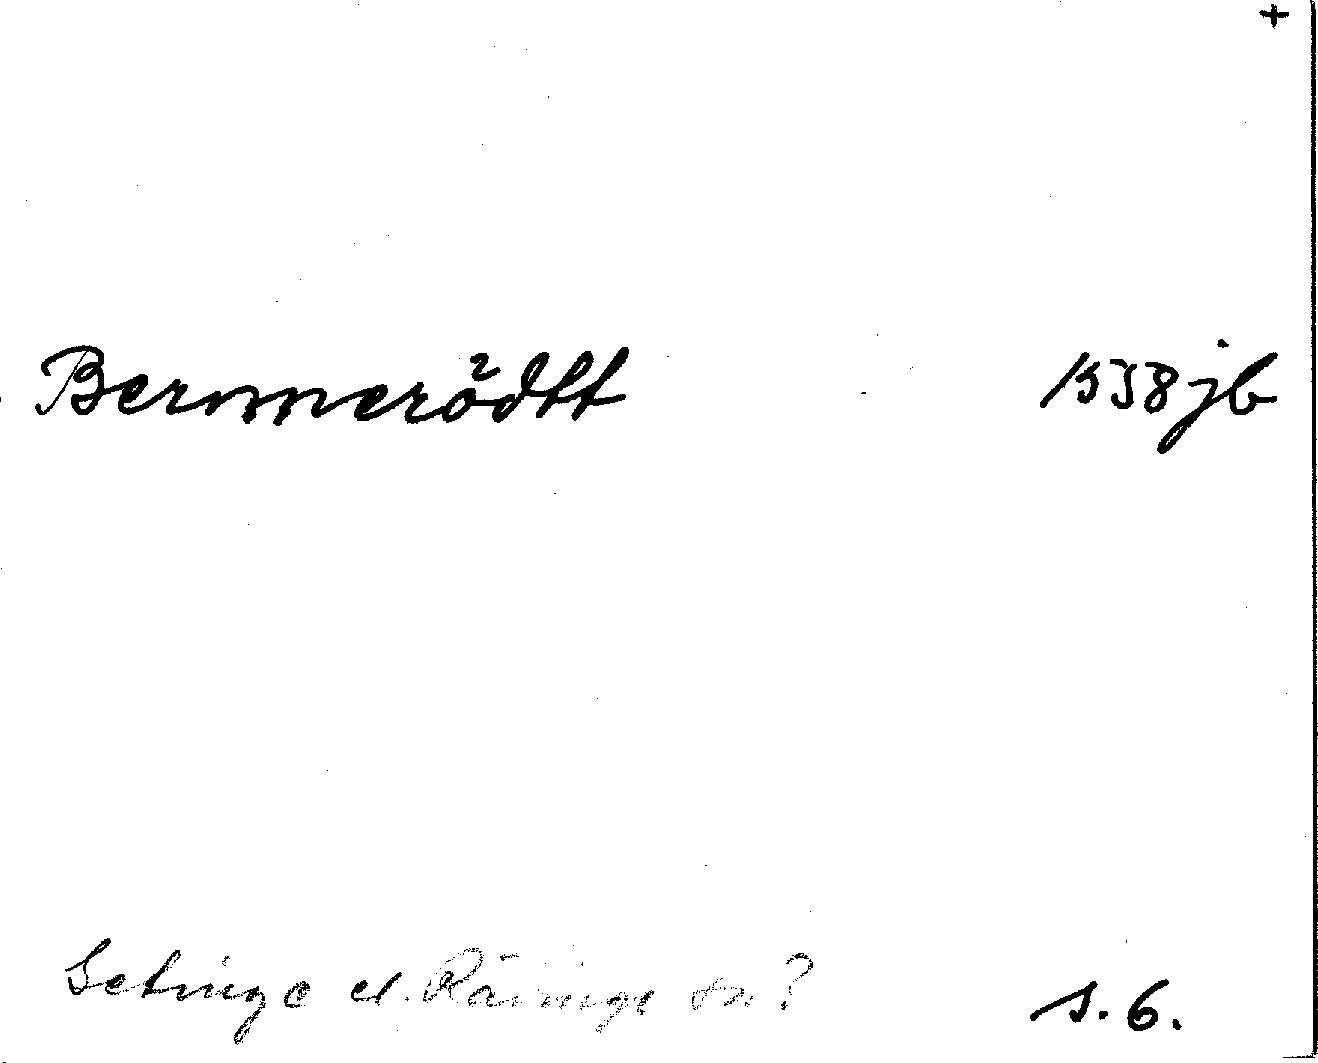 +
Bermerödtt 1558 jb
Getinge el. Räinge sn?
s. 6.